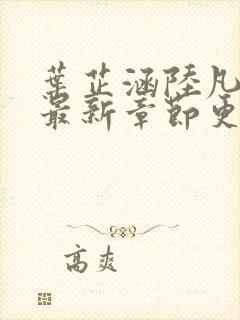 葉芷涵陸凡
最新章節更
高爽